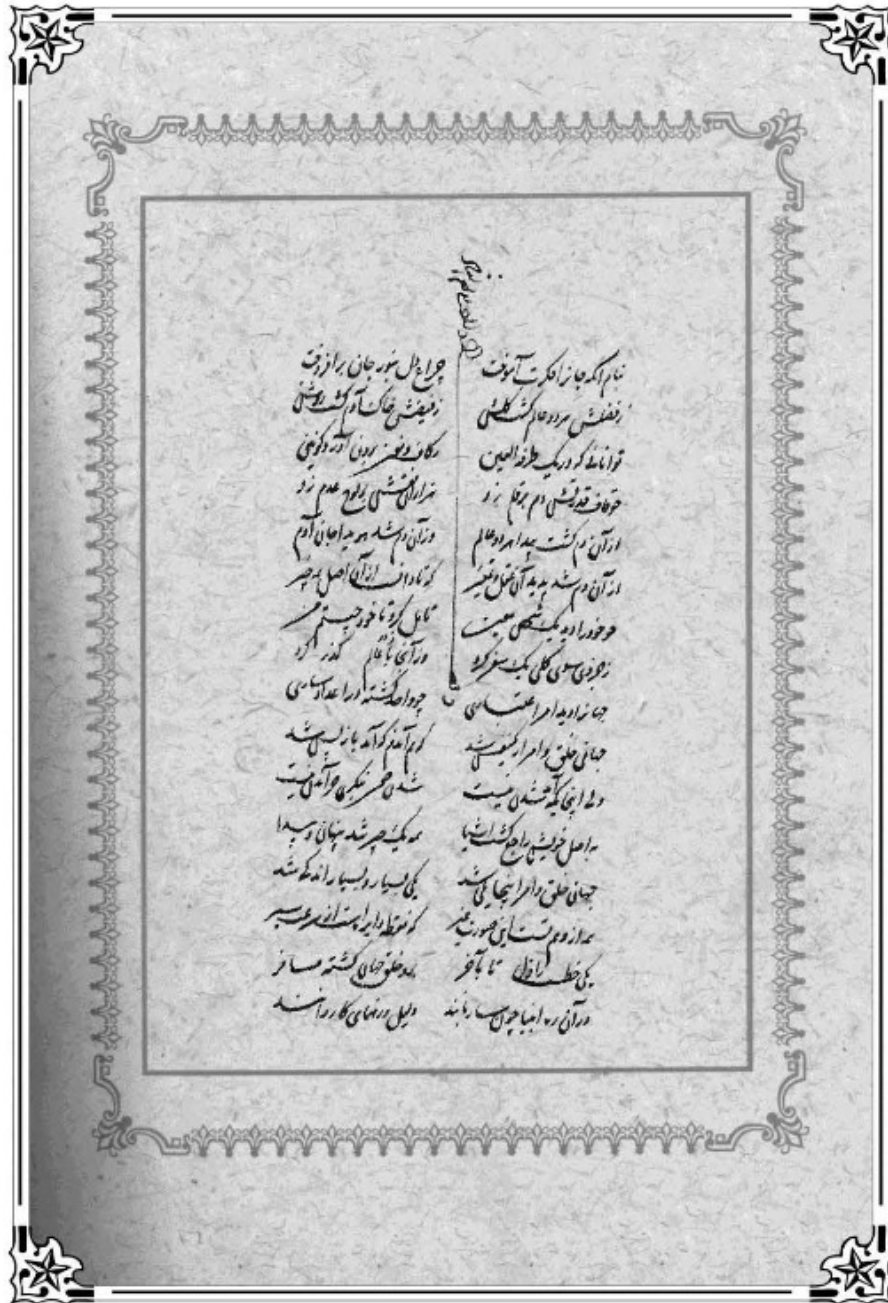 بنام آنکه جانرا فکرت آموخت چراغ دل بنور جان برافروخت
ز فضلش هر دو عالم گشت گلشن ز فیضش خاک آدم گشت روشن
توانائی که در یک طرفة العین ز کاف و نون برون آورد کونین
چو قاف قدرتش دم بر قلم زد هزاران نقش بر لوح عدم زد
از آن دم گشت پیدا هر دو عالم وز آن دم شد هویدا جان آدم
از آن دم شد پدید آن عقل و تمییز که تا دانست از آن اصل همه چیز
چو خود را دید یک شخصی معین تامل کرد تا خود چیستم من
ز جزوی سوی کلی یک سفر کرد وز آنجا باز بر عالم گذر کرد
جهانرا دید امر اعتباری چو واحد گشته در اعداد ساری
جهانی خلق و امر از یک نفس شد که هم آندم که آمد باز پس شد
ولی اینجایگه آمد شدن نیست شدن چون بنگری جز آمدن نیست
به اصل خویش راجع گشت اشیا همه یک چیز شد پنهان و پیدا
جهانی خلق و امر اینجا یکی شد یکی بسیار و بسیار اندکی شد
همه از وهم تست این صورت غیر که نقطه دایر است از سرعت سیر
یکی خط است از اول تا بآخر برو خلق جهان گشته مسافر
در آن ره انبیا چون ساربانند دلیل و رهنمای کاروانند